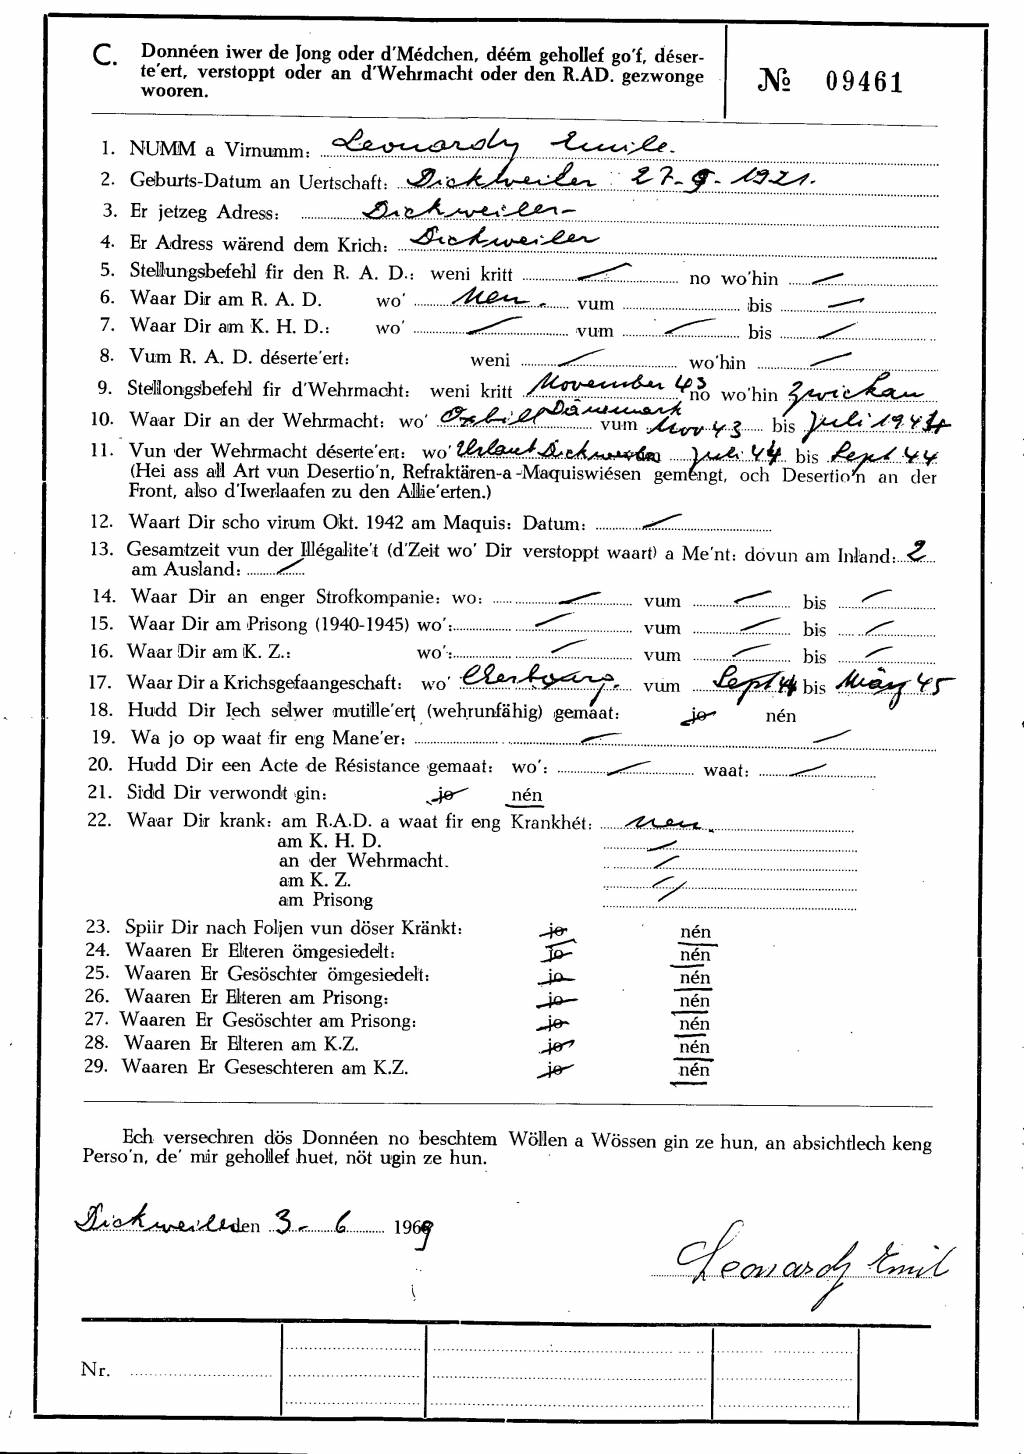 C. Donnéen iwer de Jong oder d'Médchen, déém gehollef go'f, déser-
te'ert, verstoppt oder an d'Wehrmacht oder den R.AD. gezwonge
wooren.
№ 09461
1. NUMM a Virnumm: Leonardy Emile.
2. Geburts-Datum an Uertschaft: Dickweiler 27-9-1921.
3. Er jetzeg Adress: Dickweiler-
4. Er Adress wärend dem Krich: Dickweiler
5. Stellungsbefehl fir den R. A. D.: weni kritt / no wo'hin /
6. Waar Dir am R. A. D. wo' Nen. vum bis /
7. Waar Dir am K. H. D.: wo' / vum / bis /
8. Vum R. A. D. déserte'ert: weni / wo'hin /
9. Stellongsbefehl fir d'Wehrmacht: weni kritt November 43 no wo'hin Zwickau
10. Waar Dir an der Wehrmacht: wo' Oxbill Dänemark vum Nov 43 bis Juli 1944
11. Vun der Wehrmacht déserte'ert: wo' Urlaub Dickweiler Juli 44 bis Sept 44
(Hei ass all Art vun Desertio'n, Refraktären-a-Maquiswiésen gemengt, och Desertio'n an der
Front, also d'Iwerlaafen zu den Allie'erten.)
12. Waart Dir scho virum Okt. 1942 am Maquis: Datum: /
13. Gesamtzeit vun der Illégalite't (d'Zeit wo' Dir verstoppt waart) a Me'nt: dovun am Inland: 2
am Ausland: /
14. Waar Dir an enger Strofkompanie: wo: / vum / bis /
15. Waar Dir am Prisong (1940-1945) wo': / vum / bis /
16. Waar Dir am K. Z.: wo': / vum / bis /
17. Waar Dir a Krichsgefaangeschaft: wo' Cherbourg. vum Sept 44 bis März 45
18. Hudd Dir Iech selwer mutille'ert (wehrunfähig) gemaat: jo nén
19. Wa jo op waat fir eng Mane'er: / /
20. Hudd Dir een Acte de Résistance gemaat: wo': / waat: /
21. Sidd Dir verwondt gin: jo nén
22. Waar Dir krank: am R.A.D. a waat fir eng Krankhét: Nen.
am K. H. D. /
an der Wehrmacht. /
am K. Z. /
am Prisong /
23. Spiir Dir nach Foljen vun döser Kränkt: jo nén
24. Waaren Er Elteren ömgesiedelt: jo nén
25. Waaren Er Gesöschter ömgesiedelt: jo nén
26. Waaren Er Elteren am Prisong: jo nén
27. Waaren Er Gesöschter am Prisong: jo nén
28. Waaren Er Elteren am K.Z. jo nén
29. Waaren Er Geseschteren am K.Z. jo nén
Ech versechren dös Donnéen no beschtem Wöllen a Wössen gin ze hun, an absichtlech keng
Perso'n, de' mir gehollef huet, nöt ugin ze hun.
Dickweiler den 3-6 1969
Leonardy Emil
Nr.